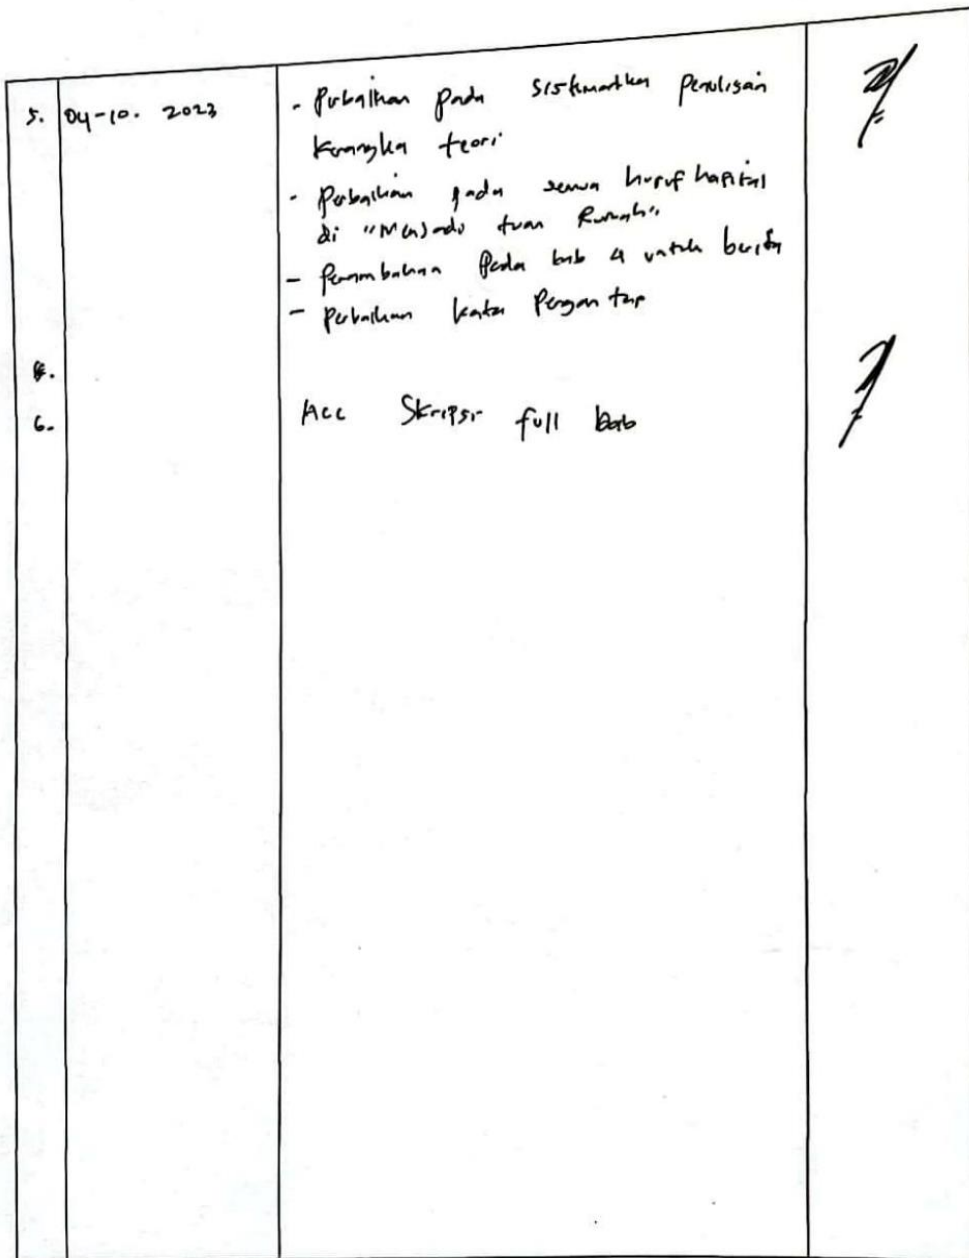 5. 04-10. 2023
- Perbaikan pada sistematika penulisan
kerangka teori
- Perbaikan pada semua huruf kapital
di "Menjadi tuan Rumah"
- Penambahan Pada bab 4 untuk berita
- Perbaikan kata Pengantar
6. Acc Skripsi full bab